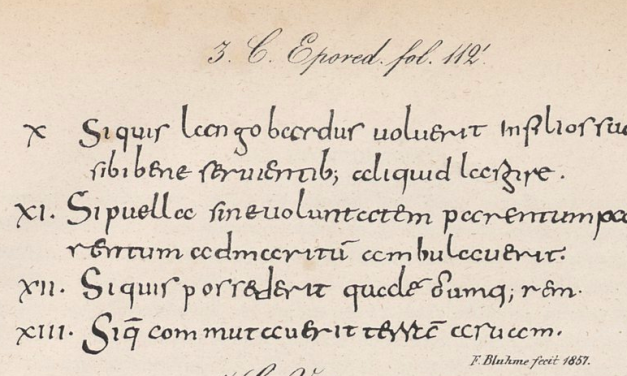 3. C. Epored. fol. 112'.
X Si quis langobardus uoluerit In filios suo
sibi bene seruientib; aliquid largire.
XI. Si puella sine uoluntatem parentum pa
rentum ad maritū ambulauerit.
XII. Si quis possederit rem.
XIII. Si q̄ commutauerit terrā
F. Bluhme fecit 1857.